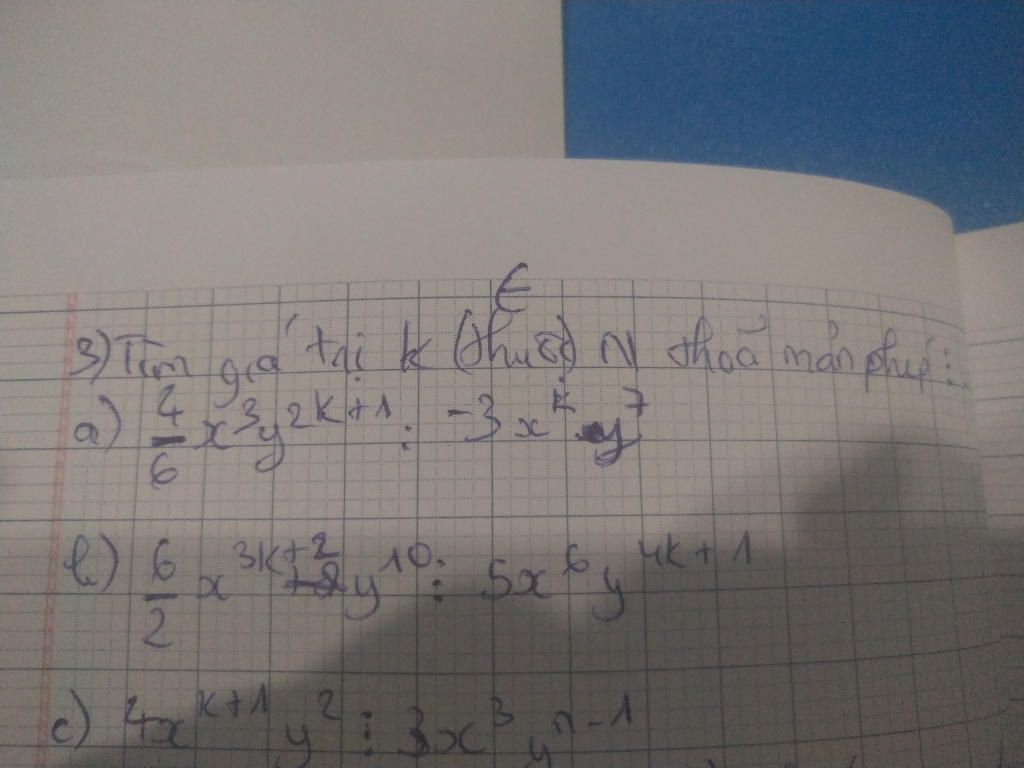 ∈
3) Tìm giá trị k (thuộc) N thoả mản phép :
a) 4/6 x^3 y^{2k+1} : -3x^k y^7
b) 6/2 x^{3k+2} y^{10} : 5x^6 y^{4k+1}
c) 4x^{k+1} y^2 : 3x^3 y^{n-1}